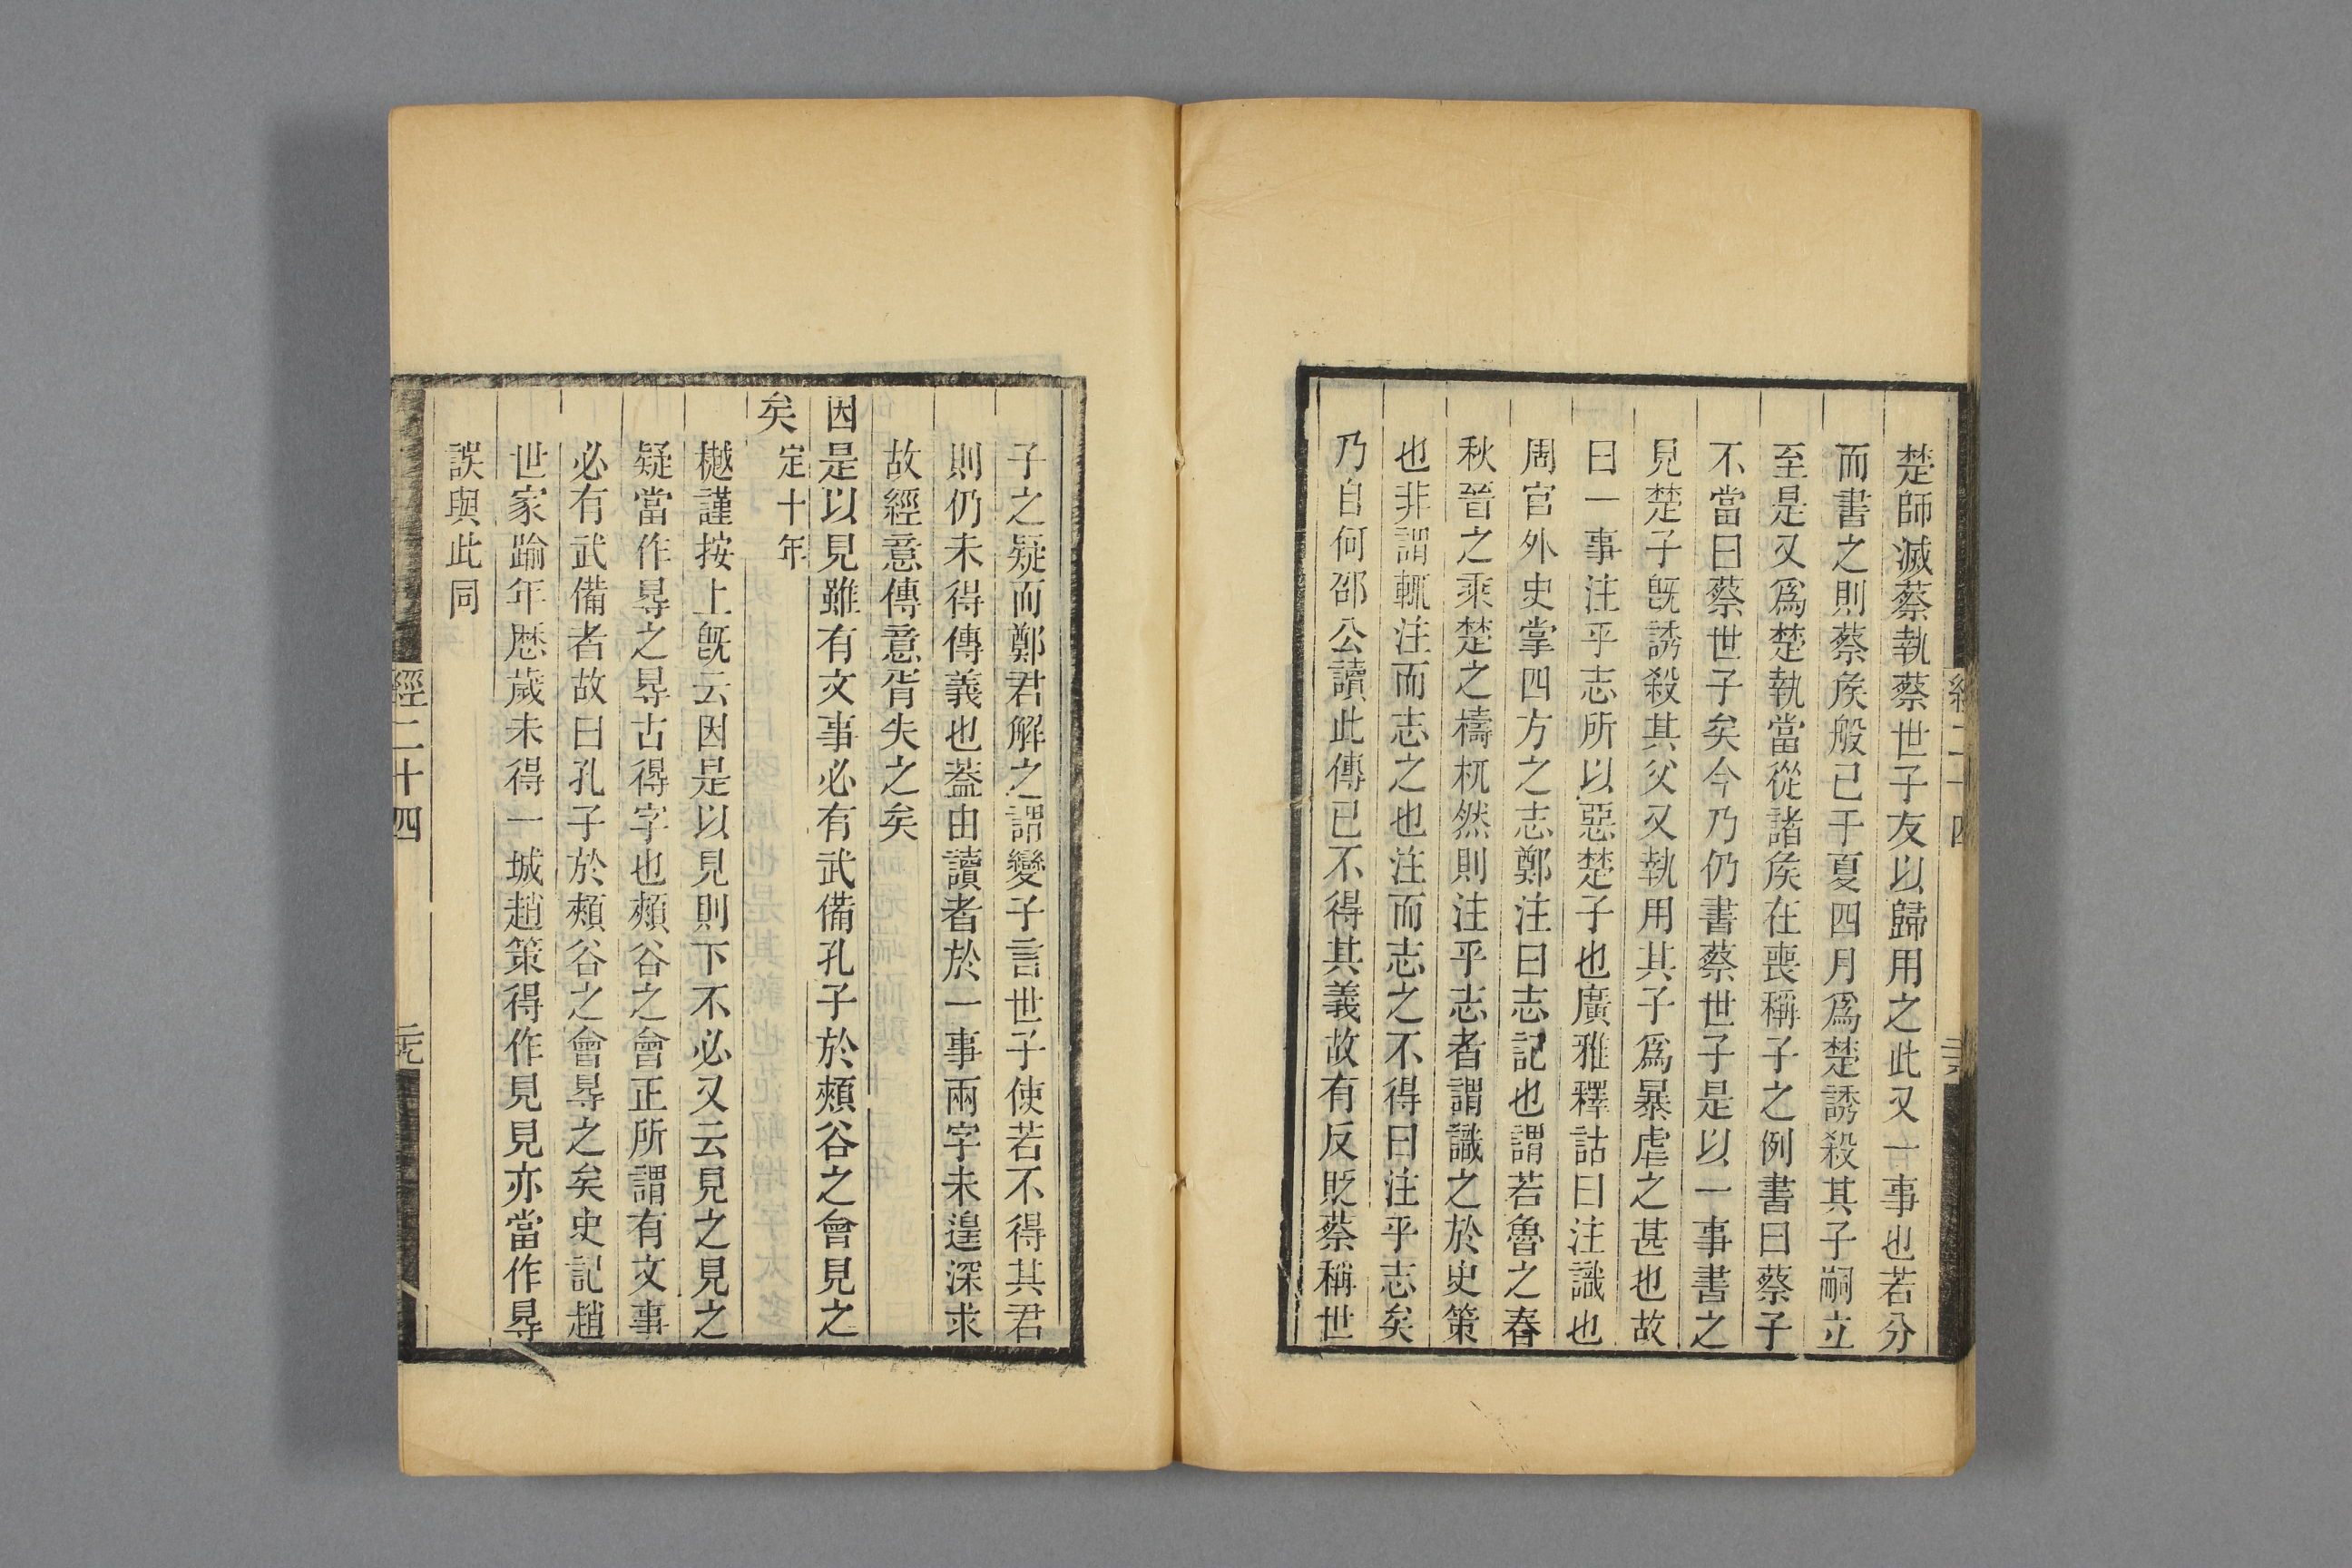 楚師滅蔡執蔡世子友以歸用之此又一事也若分
而書之則蔡矦般己于夏四月爲楚誘殺其子嗣立
至是又爲楚執當從諸矦在喪稱子之例書曰蔡子
不當曰蔡世子矣今乃仍書蔡世子是以一事書之
見楚子旣誘殺其父又執用其子爲暴虐之甚也故
曰一事注乎志所以惡楚子也廣雅釋詁曰注識也
周官外史掌四方之志鄭注曰志記也謂若魯之春
秋晉之乘楚之檮杌然則注乎志者謂識之於史策
也非謂輒注而志之也注而志之不得曰注乎志矣
乃自何邵公讀此傳已不得其義故有反貶蔡稱世
子之疑而鄭君解之謂變子言世子使若不得其君
則仍未得傳義也蓋由讀者於一事兩字未遑深求
故經意傳意胥失之矣
因是以見雖有文事必有武備孔子於頰谷之會見之
矣定十年
樾謹按上旣云因是以見則下不必又云見之見之
疑當作㝵之㝵古得字也頰谷之會正所謂有文事
必有武備者故曰孔子於頰谷之會㝵之矣史記趙
世家踰年歷歲未得一城趙策得作見見亦當作㝵
誤與此同
經二十四